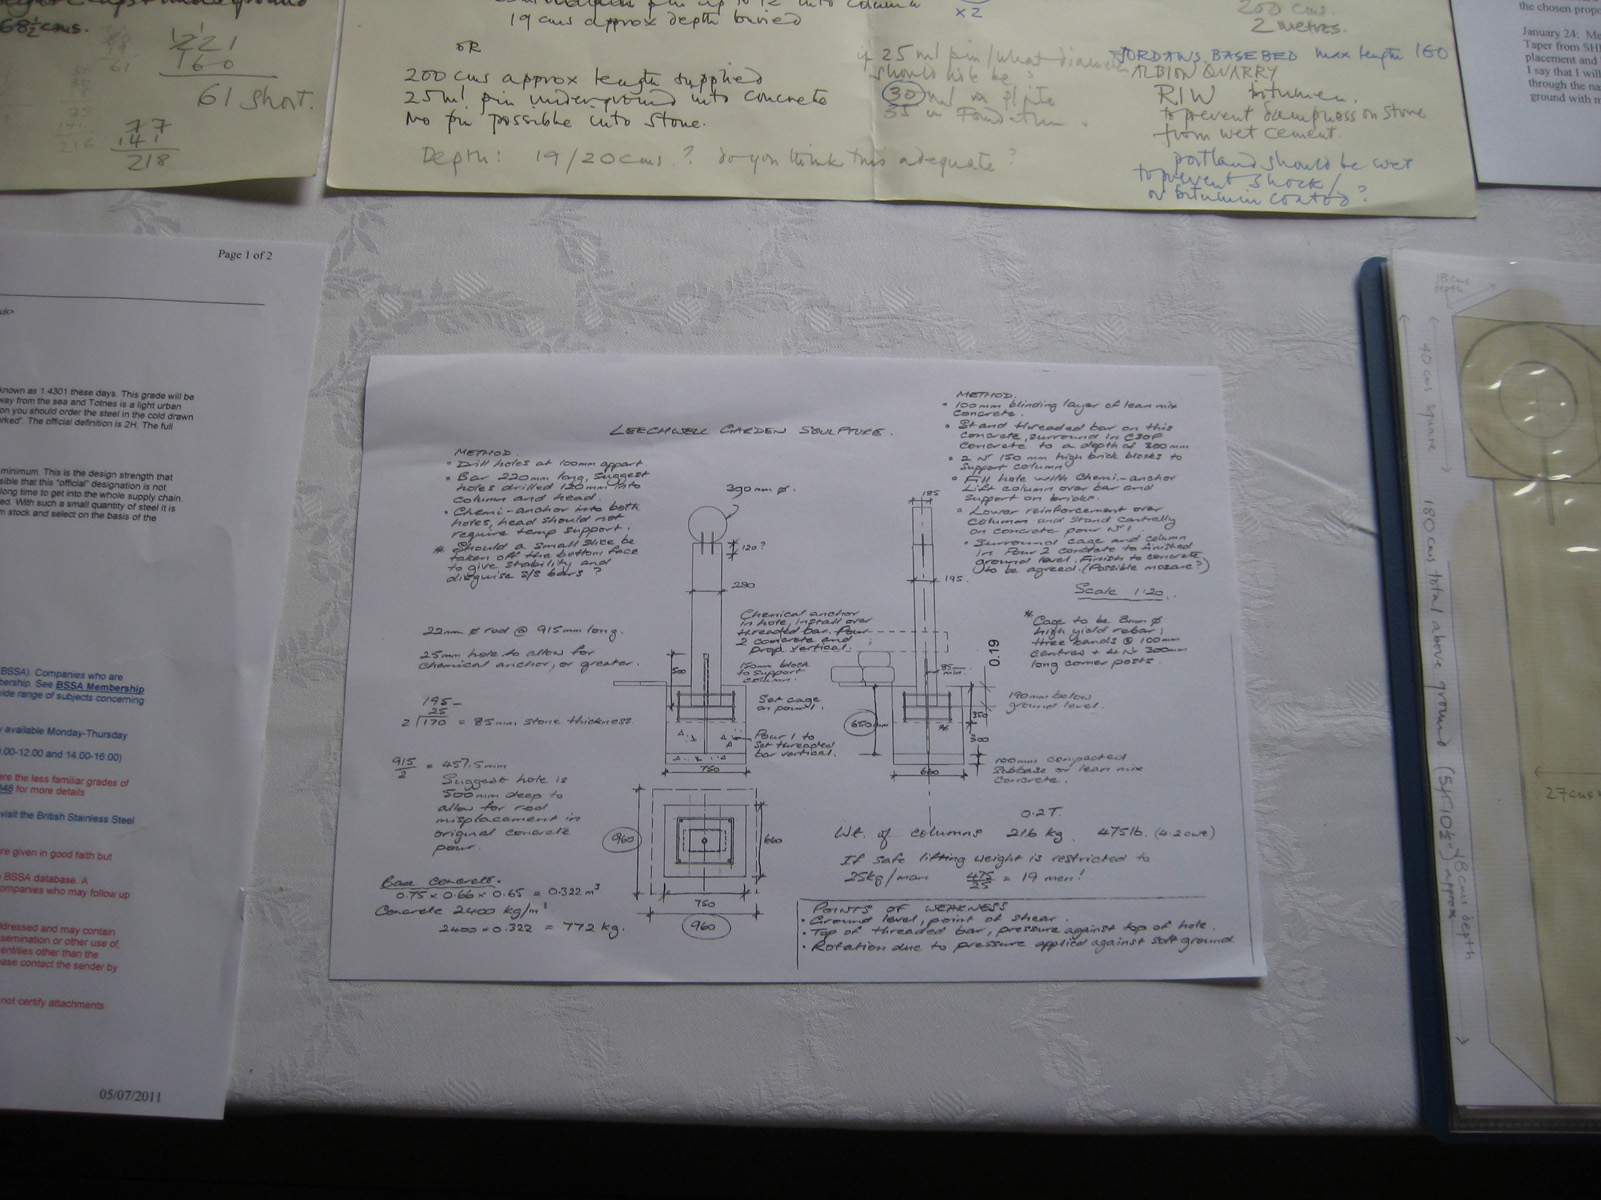 68½ cms.
221
160
61 short.
77
141
218
19 cms approx depth buried
x2
OR
200 cms approx length supplied
25ml pin underground into concrete
No pin possible into stone.
Depth: 19/20 cms.? do you think this adequate?
25 ml pin/what
should hole be?
30 ml
35 in
200 cms.
2 metres.
JORDANS BASEBED max length 160
ALBION QUARRY
RIW bitumen.
to prevent dampness on stone
from wet cement.
portland should be wet
to prevent shock/
or bitumin coated?
the chosen propo
January 24: Me
Taper from SH
placement and
I say that I will
through the na
ground with m
Page 1 of 2
uk>
known as 1.4301 these days. This grade will be
way from the sea and Totnes is a light urban
on you should order the steel in the cold drawn
rked". The official definition is 2H. The full
minimum. This is the design strength that
sible that this "official" designation is not
long time to get into the whole supply chain.
ed. With such a small quantity of steel it is
m stock and select on the basis of the
BSSA). Companies who are
bership. See BSSA Membership
wide range of subjects concerning
y available Monday-Thursday
0.00-12.00 and 14.00-16.00)
are the less familiar grades of
for more details
visit the British Stainless Steel
are given in good faith but
BSSA database. A
ompanies who may follow up
ddressed and may contain
semination or other use of,
entities other than the
ease contact the sender by
not certify attachments
05/07/2011
LEECHWELL GARDEN SCULPTURE.
METHOD
• Drill holes at 100mm appart
• Bar 220mm long, suggest
holes drilled 120mm into
column and head.
• Chemi-anchor into both
holes, head should not
require temp support.
* Should a small slice be
taken off the bottom face
to give stability and
disguise s/s bars?
22mm ø rod @ 915mm long.
25mm hole to allow for
chemical anchor, or greater.
195-
25
2 170 = 85mm stone thickness
915
2 = 457.5mm
Suggest hole is
500mm deep to
allow for rod
misplacement in
original concrete
pour.
Base Concrete.
0.75 x 0.66 x 0.65 = 0.322 m³
Concrete 2400 kg/m³
2400 x 0.322 = 772 kg.
390mm ø.
120?
280
500
Chemical anchor
in hole, install over
threaded bar. Pour
2 concrete and
prop vertical.
150mm block
to support
column.
Set cage
on pour 1.
Pour 1 to
set threaded
bar vertical.
750
960
660
750
960
METHOD.
• 100mm blinding layer of lean mix
concrete.
• Stand threaded bar on this
concrete, surround in C30P
concrete to a depth of 300mm
• 2 Nº 150 mm high brick blocks to
support column
• Fill hole with Chemi-anchor
Lift column over bar and
support on bricks.
• Lower reinforcement over
column and stand centrally
on concrete pour Nº1
• Surround cage and column
in Pour 2 concrete to finished
ground level. Finish to concrete
to be agreed. (Possible mosaic?)
Scale 1:20.
185
195
85mm
min.
0.19
* Cage to be 8mm ø
high yield rebar,
three bands @ 100mm
centres + 4 Nº 300mm
long corner posts.
190mm below
ground level.
650mm
350
300
660
100mm compacted
subbase or lean mix
concrete.
0.2T.
Wt. of columns 216 kg. 475lb. (4.2cwt)
If safe lifting weight is restricted to
25kg/man 475
25 = 19 men!
POINTS OF WEAKNESS
• Ground level, point of shear.
• Top of threaded bar, pressure against top of hole.
• Rotation due to pressure applied against soft ground.
18 cms
depth
40 cms square
180 cms total above ground (5ft 10½") approx
48 cms depth
27 cms